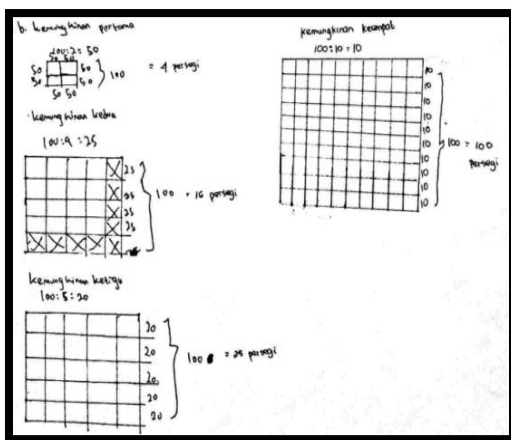 b. kemungkinan pertama
100:2 = 50
50 50
50 50
50 50
50 50
100
= 4 persegi
kemungkinan kedua
100:4 = 25
25
25
25
25
100 = 16 persegi
kemungkinan ketiga
100:5 = 20
20
20
20
20
20
100 = 25 persegi
kemungkinan keempat
100:10 = 10
10
10
10
10
10
10
10
10
10
10
100 = 100
persegi